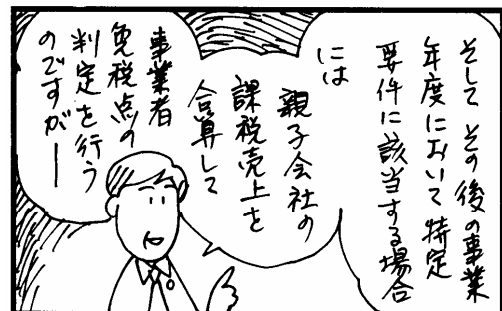 そして その後の事業
年度において特定
要件に該当する場合
には
親子会社の
課税売上を
合算して
事業者
免税点の
判定を行う
のですがー